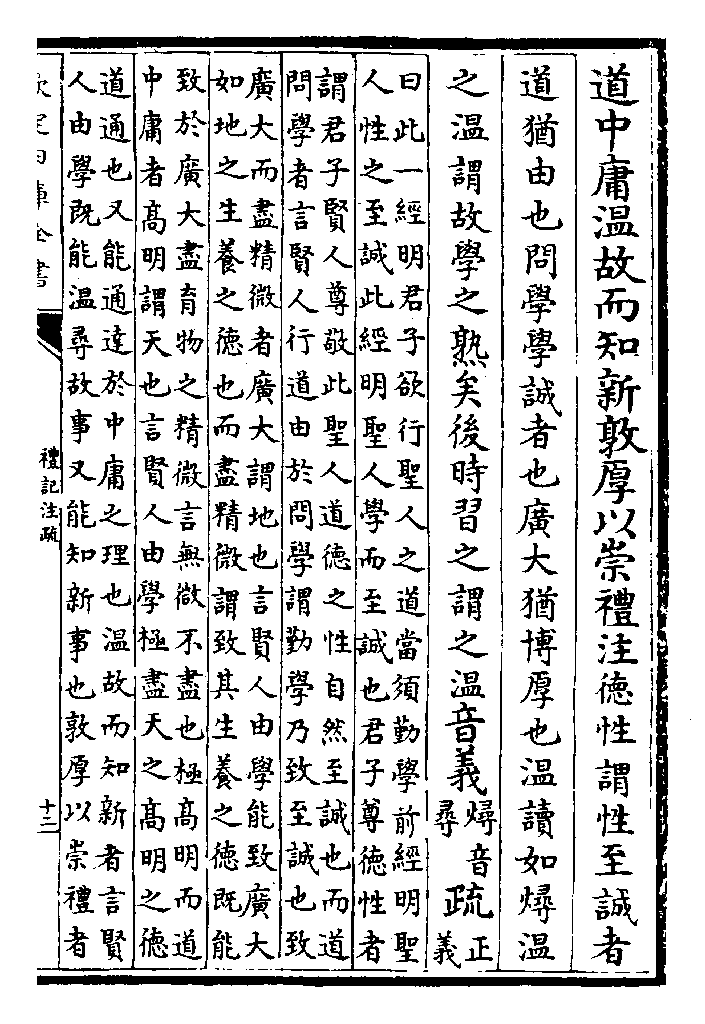 道中庸温故而知新敦厚以崇禮注德性謂性至誠者
道猶由也問學學誠者也廣大猶博厚也温讀如燖温
之温謂故學之熟矣後時習之謂之温音義燖音尋疏正義
曰此一經明君子欲行聖人之道當須勤學前經明聖
人性之至誠此經明聖人學而至誠也君子尊德性者
謂君子賢人尊敬此聖人道德之性自然至誠也而道
問學者言賢人行道由於問學謂勤學乃致至誠也致
廣大而盡精微者廣大謂地也言賢人由學能致廣大
如地之生養之德也而盡精微謂致其生養之德既能
致於廣大盡育物之精微言無微不盡也極高明而道
中庸者高明謂天也言賢人由學極盡天之高明之德
道通也又能通達於中庸之理也温故而知新者言賢
人由學既能温尋故事又能知新事也敦厚以崇禮者
欽定四庫全書
禮記注疏
十二